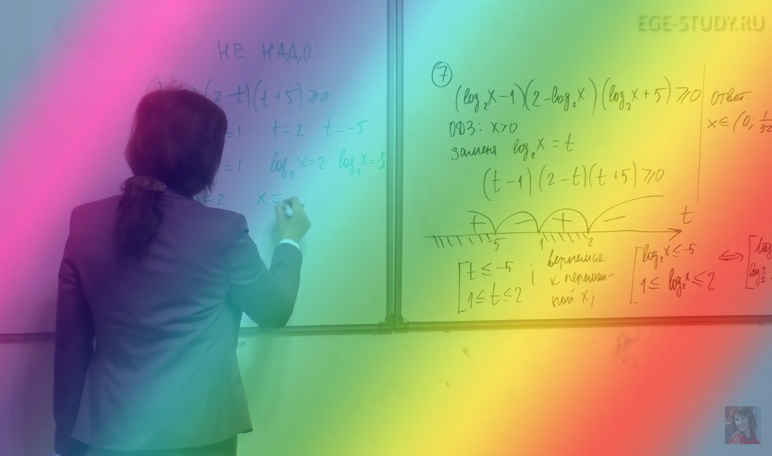 EGE-STUDY.RU
НЕ НАДО:
(2-t)(t+5)≥0
=1 t=2 t=-5
=1 log₂x=2 log₂x=-5
=2 x=
7
(log₂x-1)(2-log₂x)(log₂x+5)≥0
ОДЗ: x>0
замена log₂x=t
(t-1)(2-t)(t+5)≥0
+ - + - t
-5 1 2
[t≤-5
1≤t≤2
;
вернёмся
к перемен-
ной x;
[log₂x≤-5
1≤log₂x≤2
⇔ [log
log
Ответ:
x∈(0, 1/32